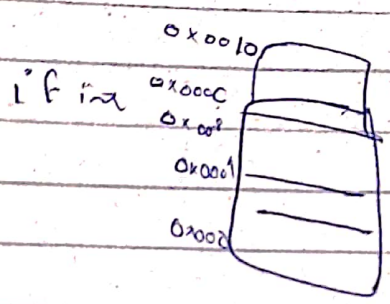 0x0010
if in 0x000C
0x008
0x0004
0x000